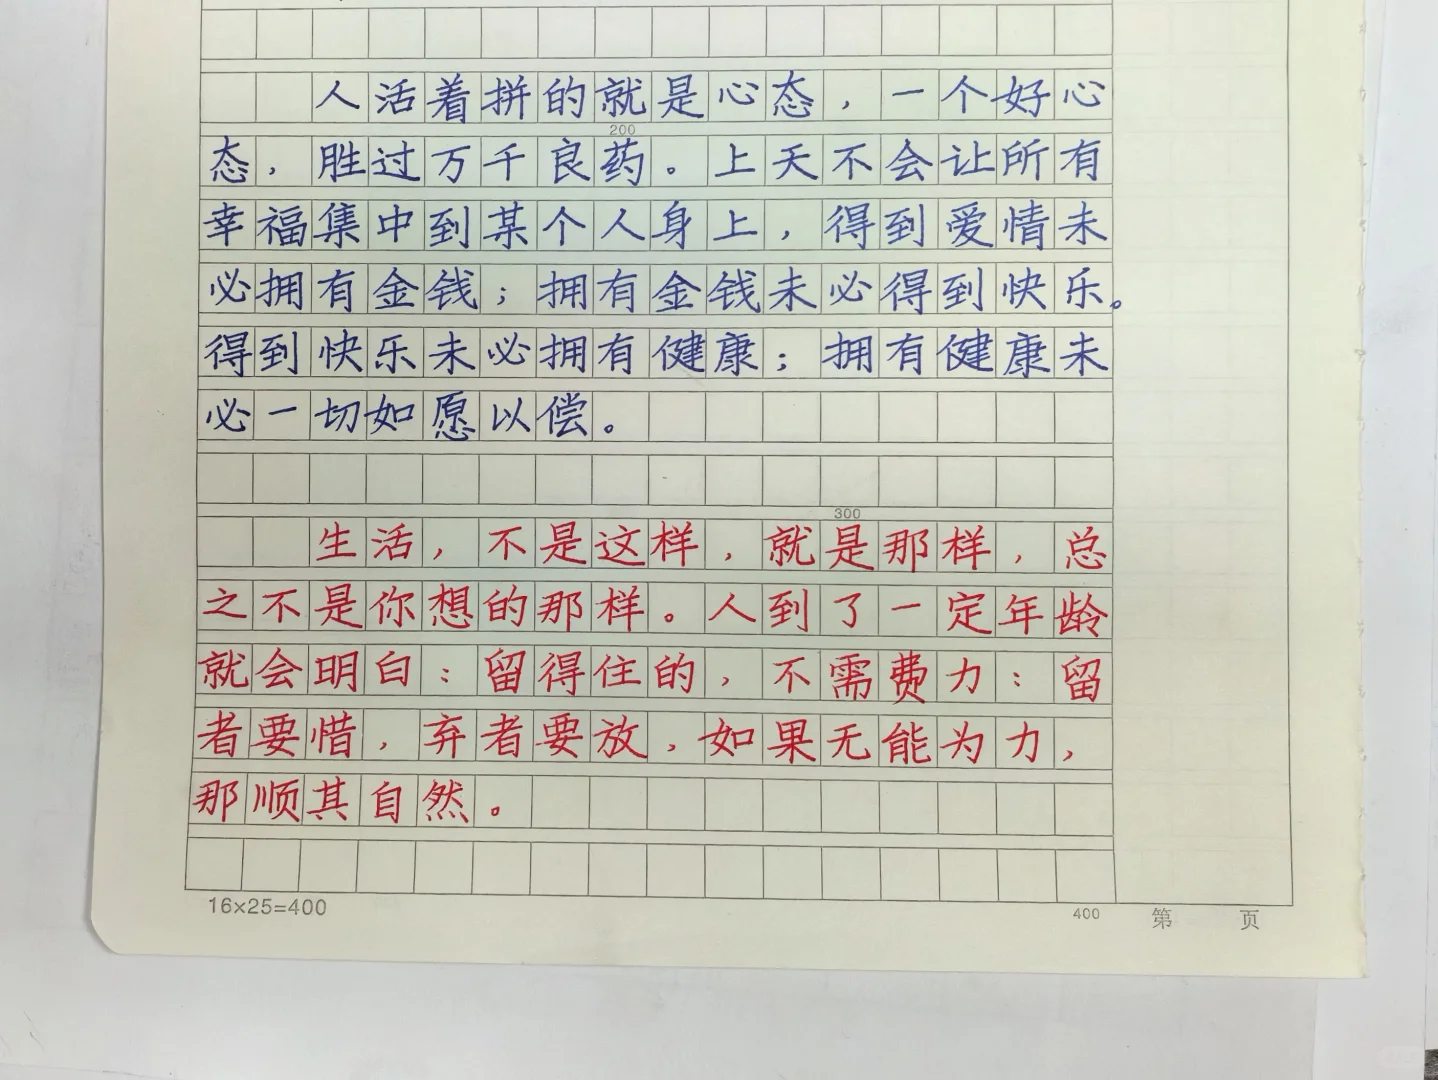 人活着拼的就是心态，一个好心
200
态，胜过万千良药。上天不会让所有
幸福集中到某个人身上，得到爱情未
必拥有金钱；拥有金钱未必得到快乐。
得到快乐未必拥有健康；拥有健康未
必一切如愿以偿。
300
生活，不是这样，就是那样，总
之不是你想的那样。人到了一定年龄
就会明白：留得住的，不需费力：留
者要惜，弃者要放，如果无能为力，
那顺其自然。
16×25=400
400 第 页